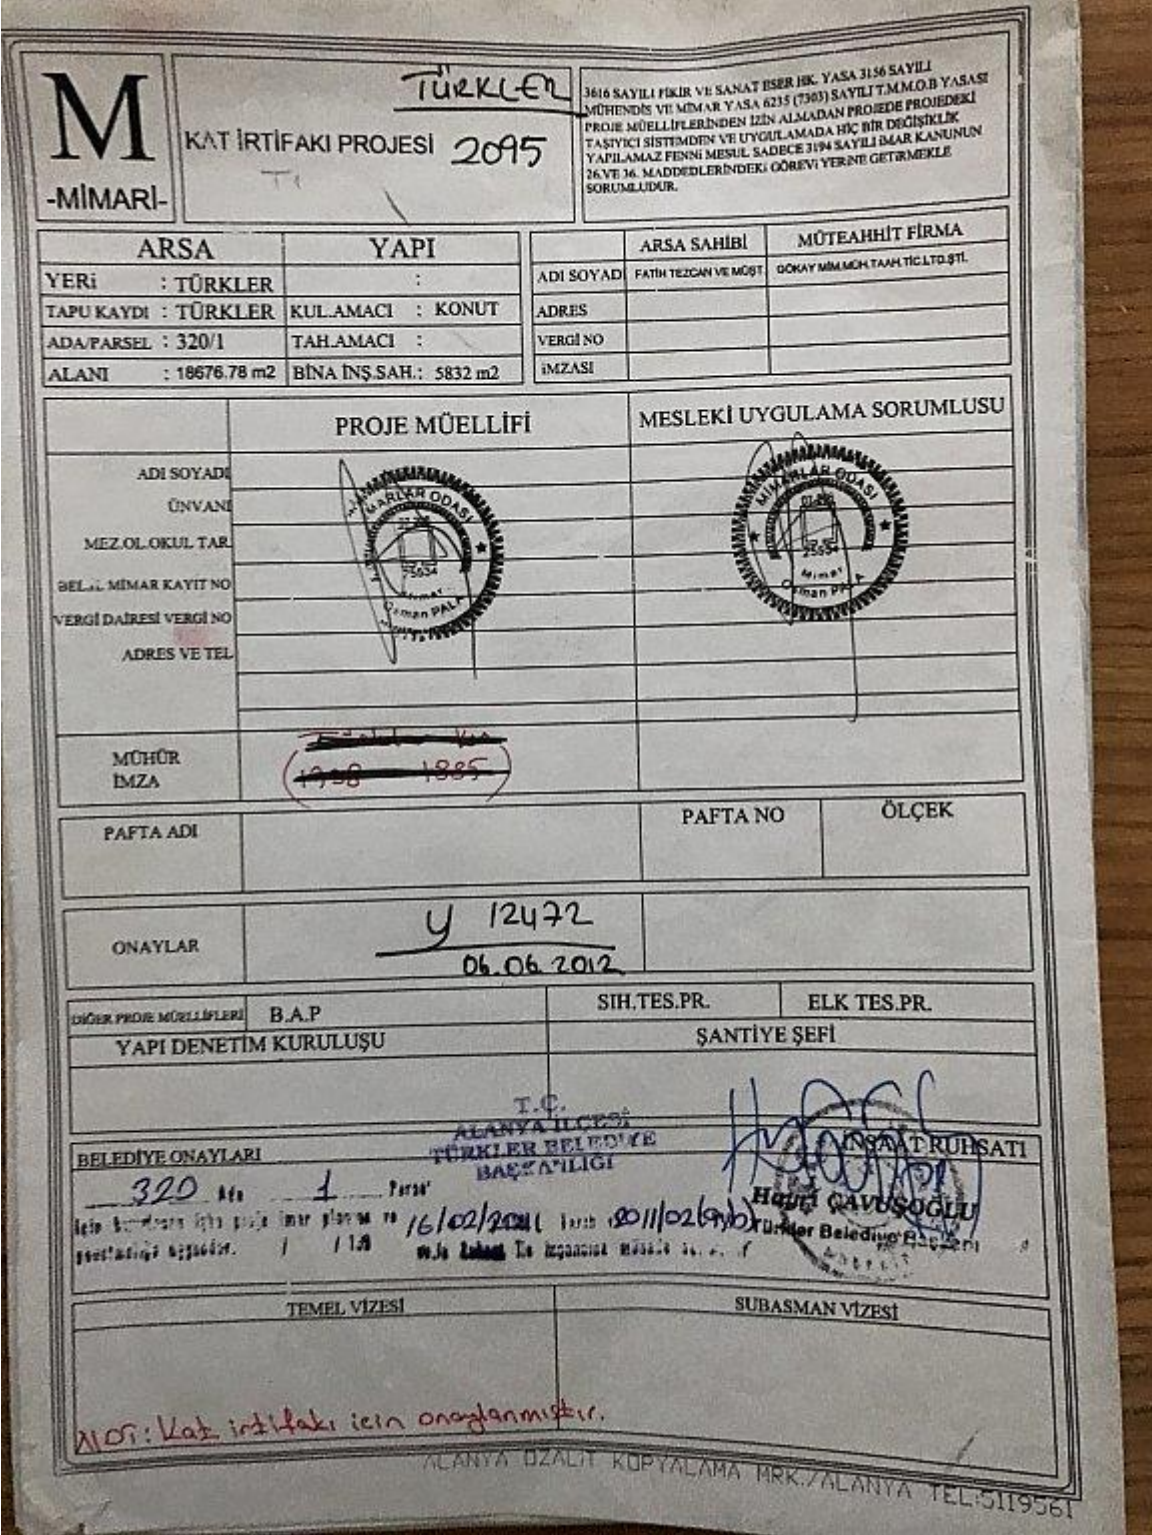 M
-MİMARİ-
TÜRKLER
KAT İRTİFAKI PROJESİ 2095
3616 SAYILI FİKİR VE SANAT ESER HK. YASA 3156 SAYILI
MÜHENDİS VE MİMAR YASA 6235 (7303) SAYILI T.M.M.O.B YASASI
PROJE MÜELLİFLERİNDEN İZİN ALMADAN PROJEDE PROJEDEKİ
TAŞIYICI SİSTEMDEN VE UYGULAMADA HİÇ BİR DEĞİŞİKLİK
YAPILAMAZ FENNİ MESUL SADECE 3194 SAYILI İMAR KANUNUN
26.VE 36. MADDEDLERİNDEKİ GÖREVİ YERİNE GETİRMEKLE
SORUMLUDUR.
ARSA YAPI
YERİ : TÜRKLER :
TAPU KAYDI : TÜRKLER KUL.AMACI : KONUT
ADA/PARSEL : 320/1 TAH.AMACI :
ALANI : 18676.78 m2 BİNA İNŞ.SAH.: 5832 m2
ARSA SAHİBİ MÜTEAHHİT FİRMA
ADI SOYADI FATİH TEZCAN VE MÜŞT. GÖKAY MİM.MÜH.TAAH.TİC.LTD.ŞTİ.
ADRES
VERGİ NO
İMZASI
PROJE MÜELLİFİ MESLEKİ UYGULAMA SORUMLUSU
ADI SOYADI
ÜNVANI
MEZ.OL.OKUL TAR.
MİMAR KAYIT NO
VERGİ DAİRESİ VERGİ NO
ADRES VE TEL
MARLAR ODASI
25934
Mimar
Osman PALA
MİMARLAR ODASI
25934
Mimar
Osman PALA
MÜHÜR
İMZA
1885
PAFTA ADI PAFTA NO ÖLÇEK
ONAYLAR
y 12472
06.06.2012
DİĞER PROJE MÜELLİFLERİ B.A.P SIH.TES.PR. ELK TES.PR.
YAPI DENETİM KURULUŞU ŞANTİYE ŞEFİ
T.C.
ALANYA İLÇESİ
TÜRKLER BELEDİYE
BAŞKANLIĞI
BELEDİYE ONAYLARI İNŞAAT RUHSATI
320 Ada 1 Parsel
proje imar planına ve 16/02/2011 tarih 2011/02(9/b)
Hayri ÇAVUŞOĞLU
Türkler Belediye Başkanı
TEMEL VİZESİ SUBASMAN VİZESİ
NOT: Kat irtifakı için onaylanmıştır.
ALANYA OZALİT KOPYALAMA MRK./ALANYA TEL:5119561